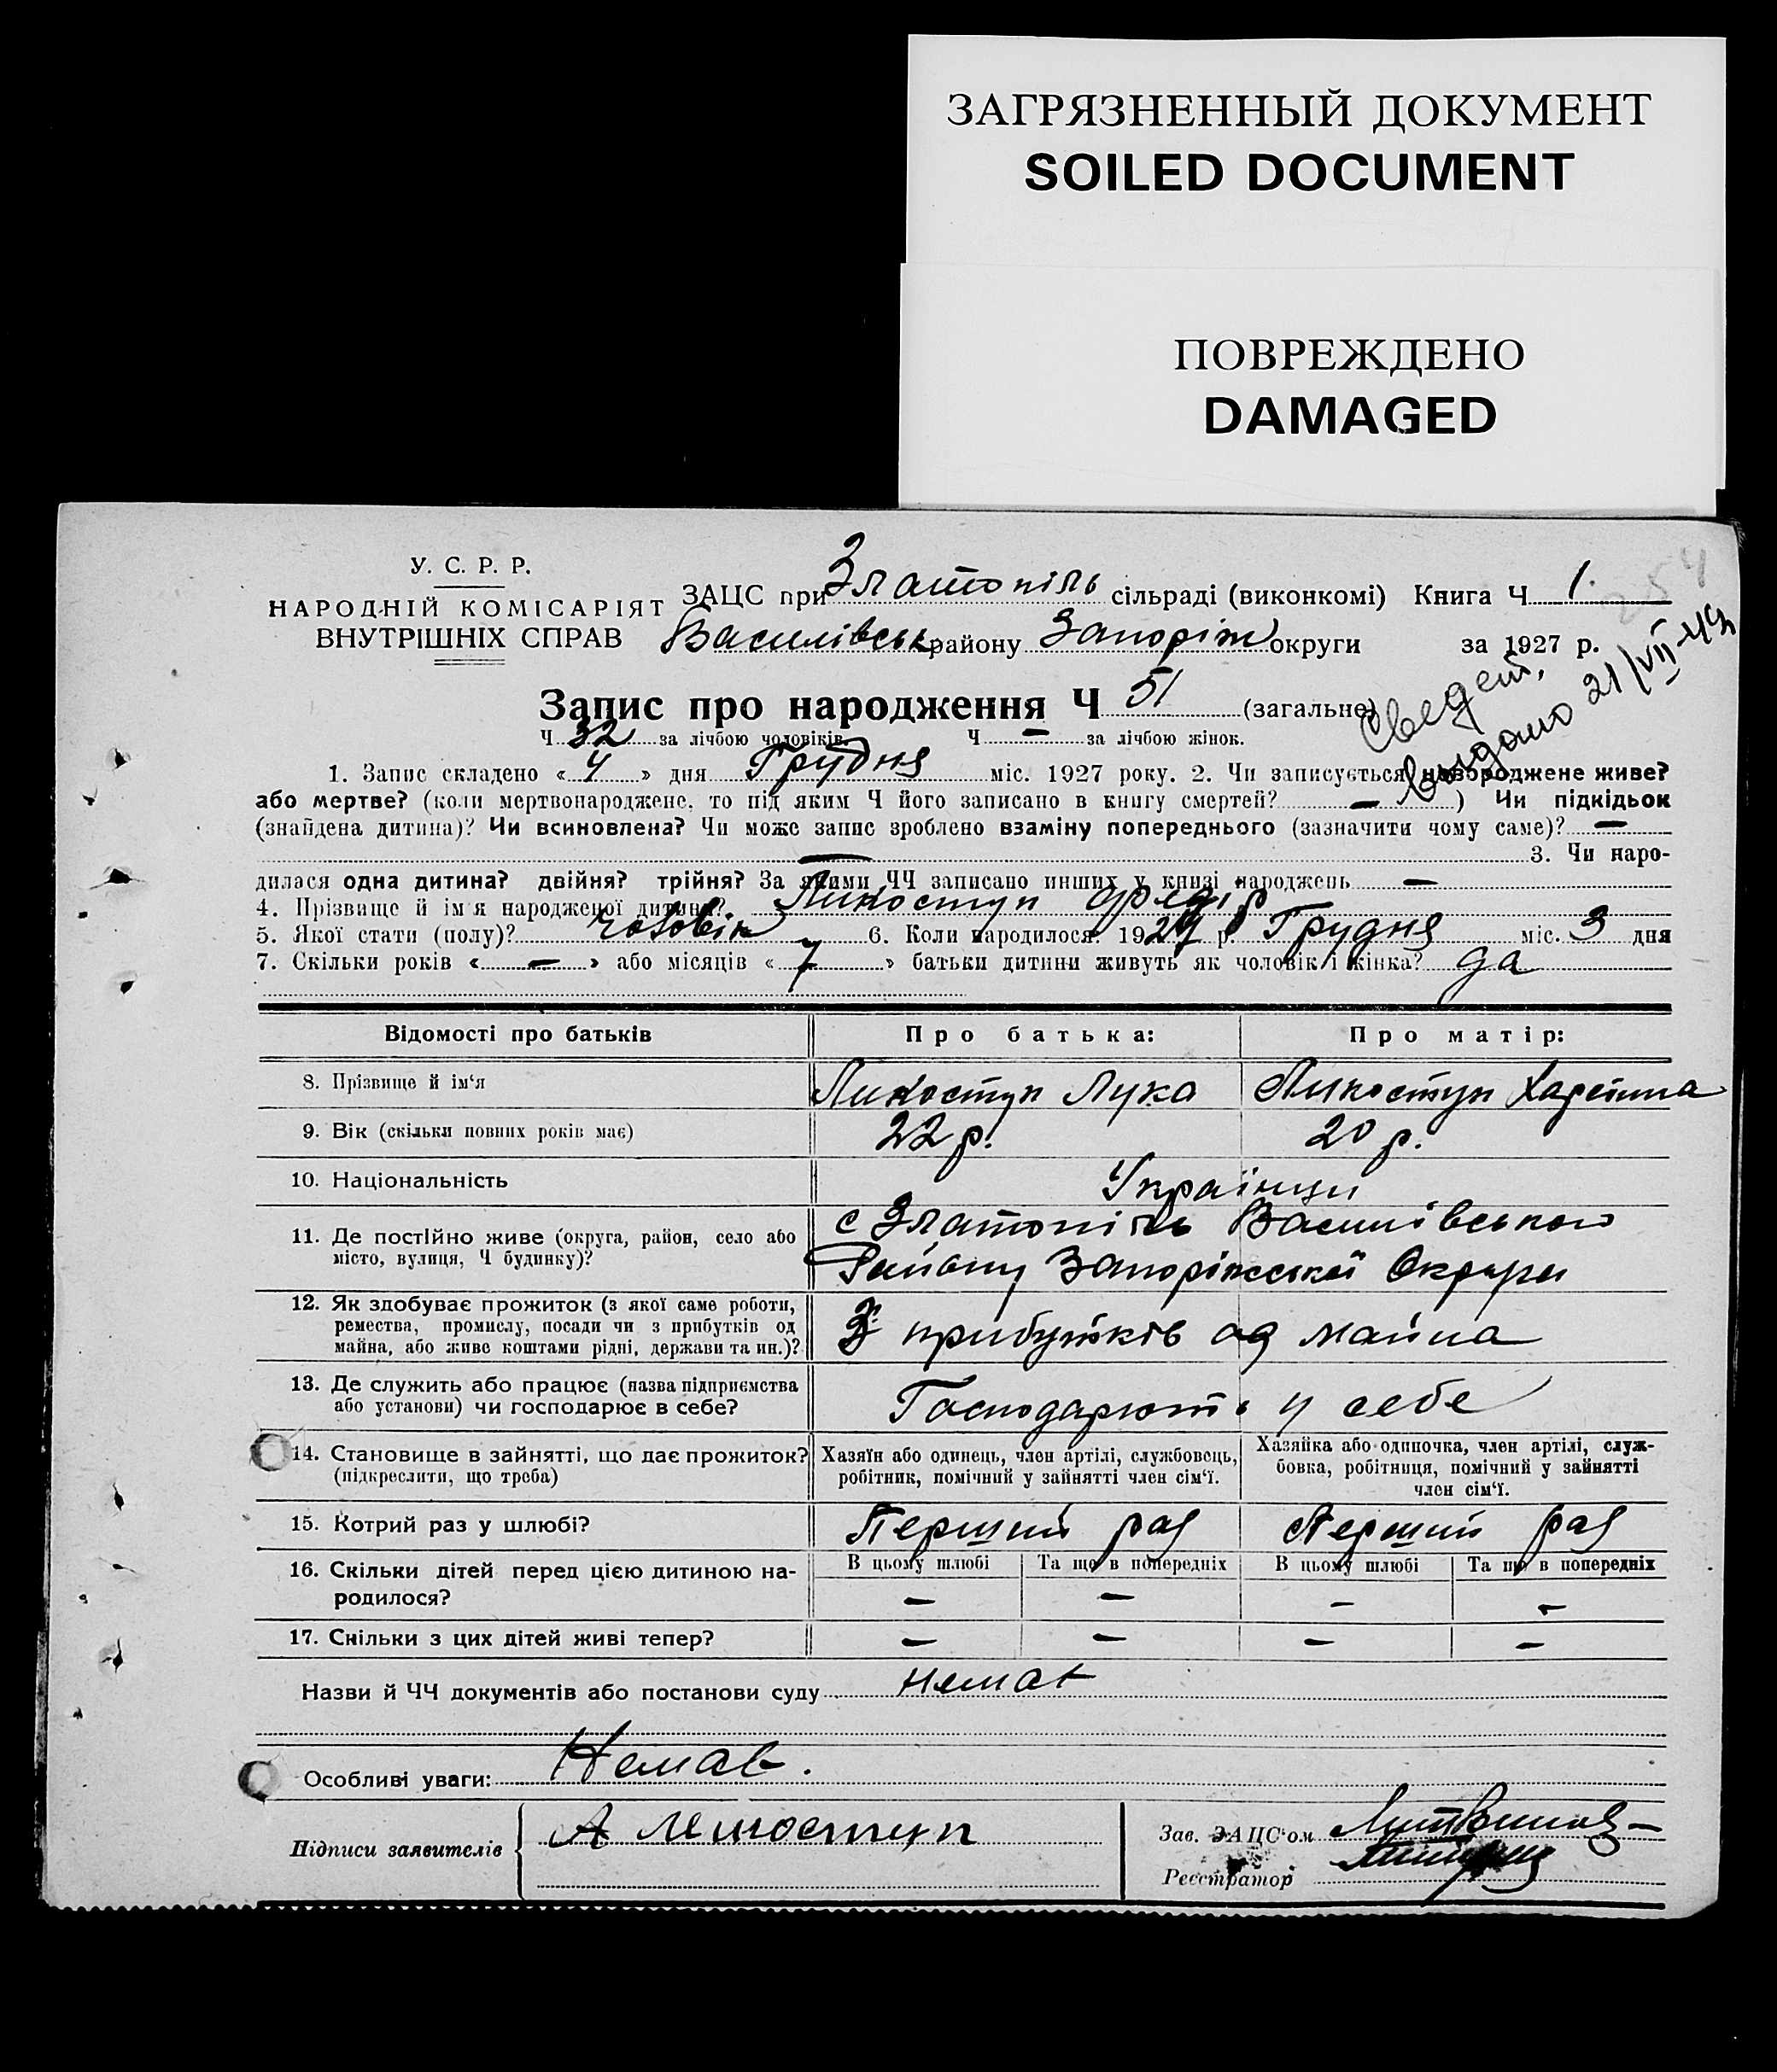 ЗАГРЯЗНЕННЫЙ ДОКУМЕНТ
SOILED DOCUMENT
ПОВРЕЖДЕНО
DAMAGED
У. С. Р. Р.
НАРОДНІЙ КОМІСАРІЯТ
ВНУТРІШНІХ СПРАВ
ЗАЦС при Златопіль сільраді (виконкомі) Книга Ч 1.
Василівськ району Запоріж округи за 1927 р.
Свидет.
выдано 21/VII-43
Запис про народження Ч 51 (загальне)
Ч 32 за лічбою чоловіків Ч — за лічбою жінок.
1. Запис складено « 4 » дня Грудня міс. 1927 року. 2. Чи записується новороджене живе?
або мертве? (коли мертвонароджене, то під яким Ч його записано в книгу смертей? — ) Чи підкідьок
(знайдена дитина)? Чи всиновлена? Чи може запис зроблено взаміну попереднього (зазначити чому саме)? —
— 3. Чи наро-
дилася одна дитина? двійня? трійня? За якими ЧЧ записано инших у книзі народжень —
4. Прізвище й ім'я народженої дитини? Ликоступ Федір
5. Якої стати (полу)? чоловік 6. Коли народилося? 1927 р. Грудня міс. 3 дня
7. Скільки років « — » або місяців « 7 » батьки дитини живуть як чоловік і жінка? да
Відомості про батьків Про батька: Про матір:
8. Прізвище й ім'я Ликоступ Лука Ликоступ
9. Вік (скільки повних років має) 22 р. 20 р.
10. Національність Українци
11. Де постійно живе (округа, район, село або
місто, вулиця, Ч будинку)?
с Златопіль Василівського
Району Запоріжської Округи
12. Як здобуває прожиток (з якої саме роботи,
ремества, промислу, посади чи з прибутків од
майна, або живе коштами рідні, держави та ин.)?
З прибутків од майна
13. Де служить або працює (назва підприємства
або установи) чи господарює в себе?
Господарють у себе
14. Становище в зайнятті, що дає прожиток?
(підкреслити, що треба)
Хазяїн або одинець, член артілі, службовець,
робітник, помічний у зайнятті член сім'ї.
Хазяйка або одиночка, член артілі, служ-
бовка, робітниця, помічний у зайнятті
член сім'ї.
15. Котрий раз у шлюбі? Перший раз Перший раз
16. Скільки дітей перед цією дитиною на-
родилося?
В цьому шлюбі Та що в попередніх В цьому шлюбі Та що в попередніх
— — — —
17. Скільки з цих дітей живі тепер? — — — —
Назви й ЧЧ документів або постанови суду немає
Особливі уваги: Немає.
Підписи заявителів
Зав. ЗАЦС'ом
Реєстратор